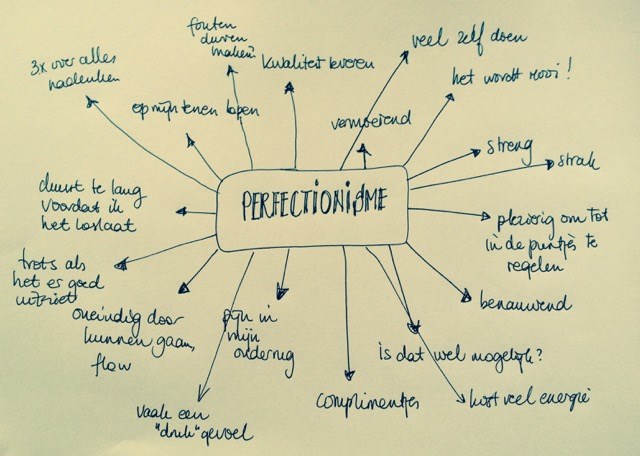 fouten
durven
maken?
3x over alles
nadenken
kwaliteit leveren
veel zelf doen
het wordt mooi!
op mijn tenen lopen
vermoeiend
streng
strak
duurt te lang
voordat ik
het loslaat
PERFECTIONISME
plezierig om tot
in de puntjes te
regelen
trots als
het er goed
uitziet
oneindig door
kunnen gaan,
flow
pijn in
mijn
onderrug
benauwend
is dat wel mogelijk?
complimentjes
kost veel energie
vaak een
"druk" gevoel